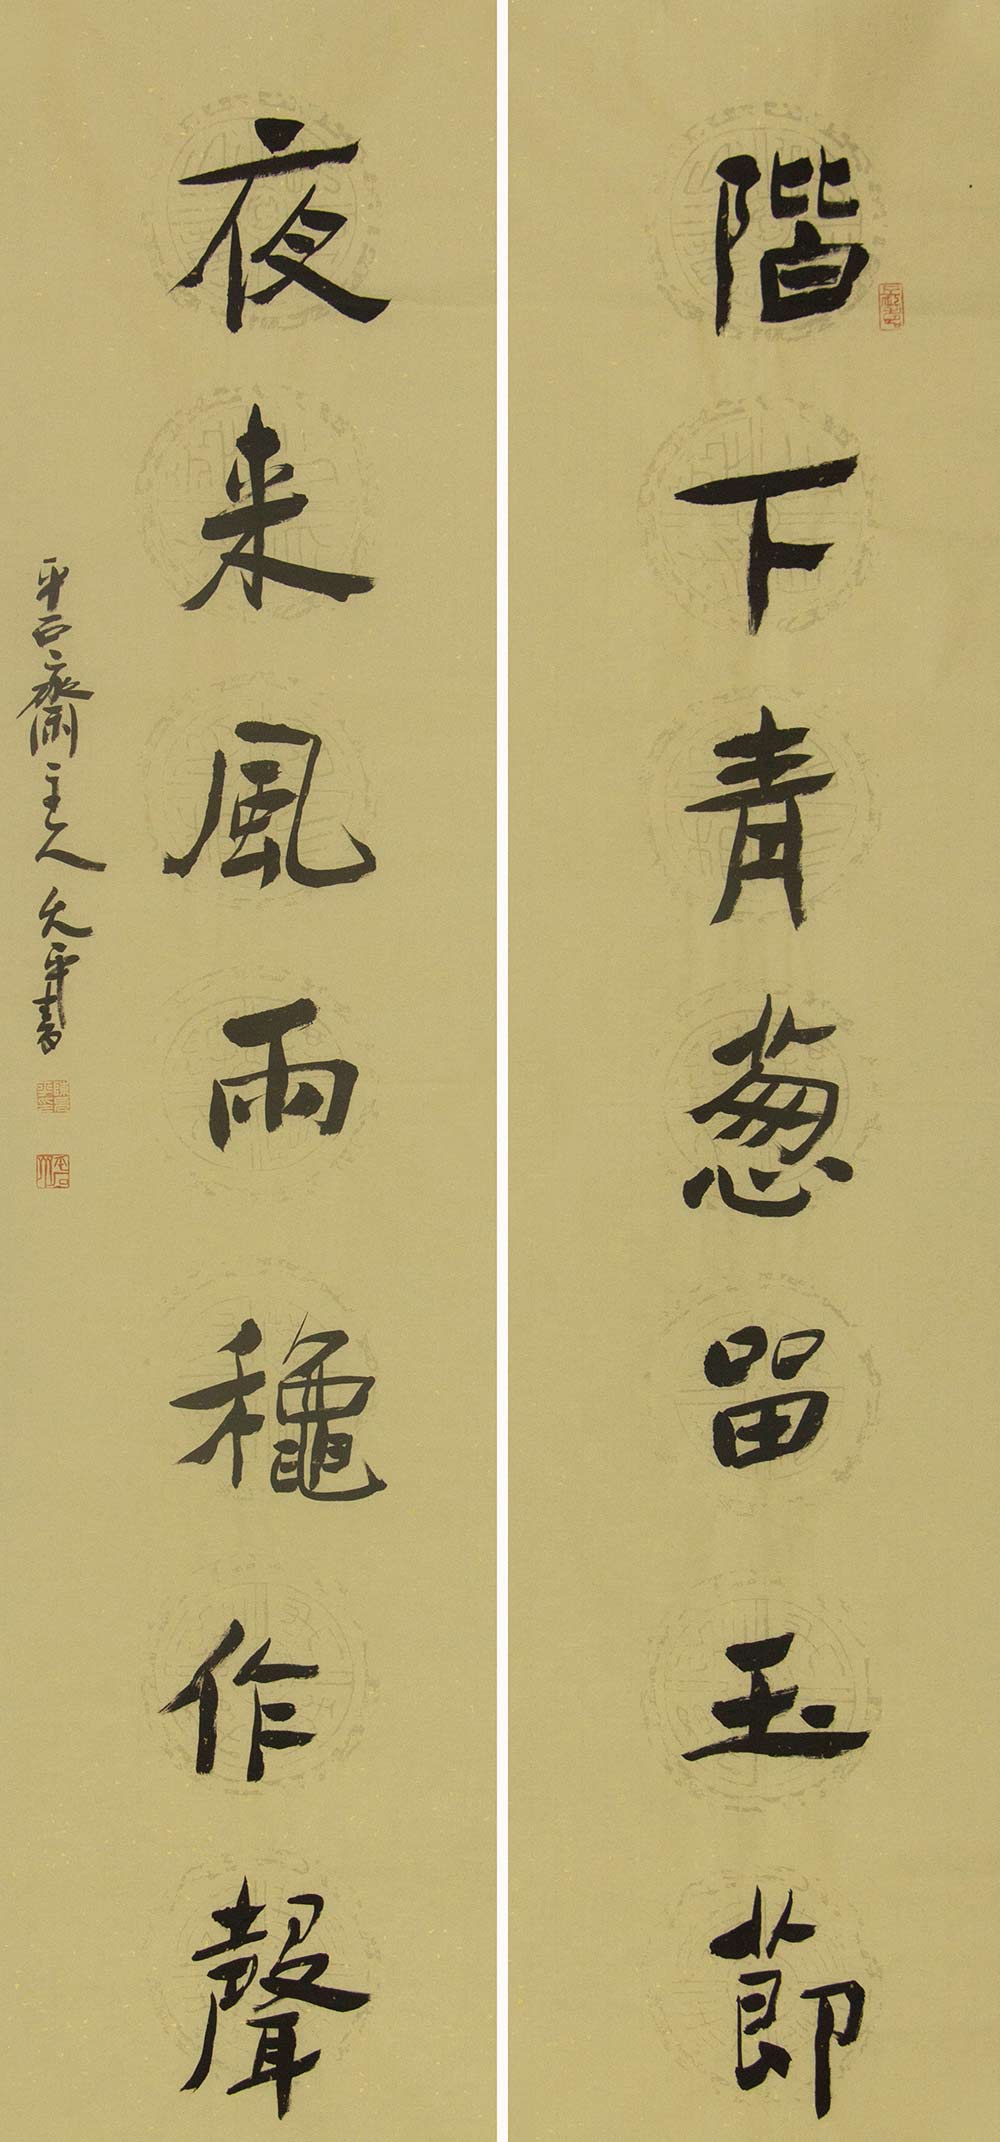 階下青葱留玉節
夜来風雨龝作聲
平石齋主人大平書